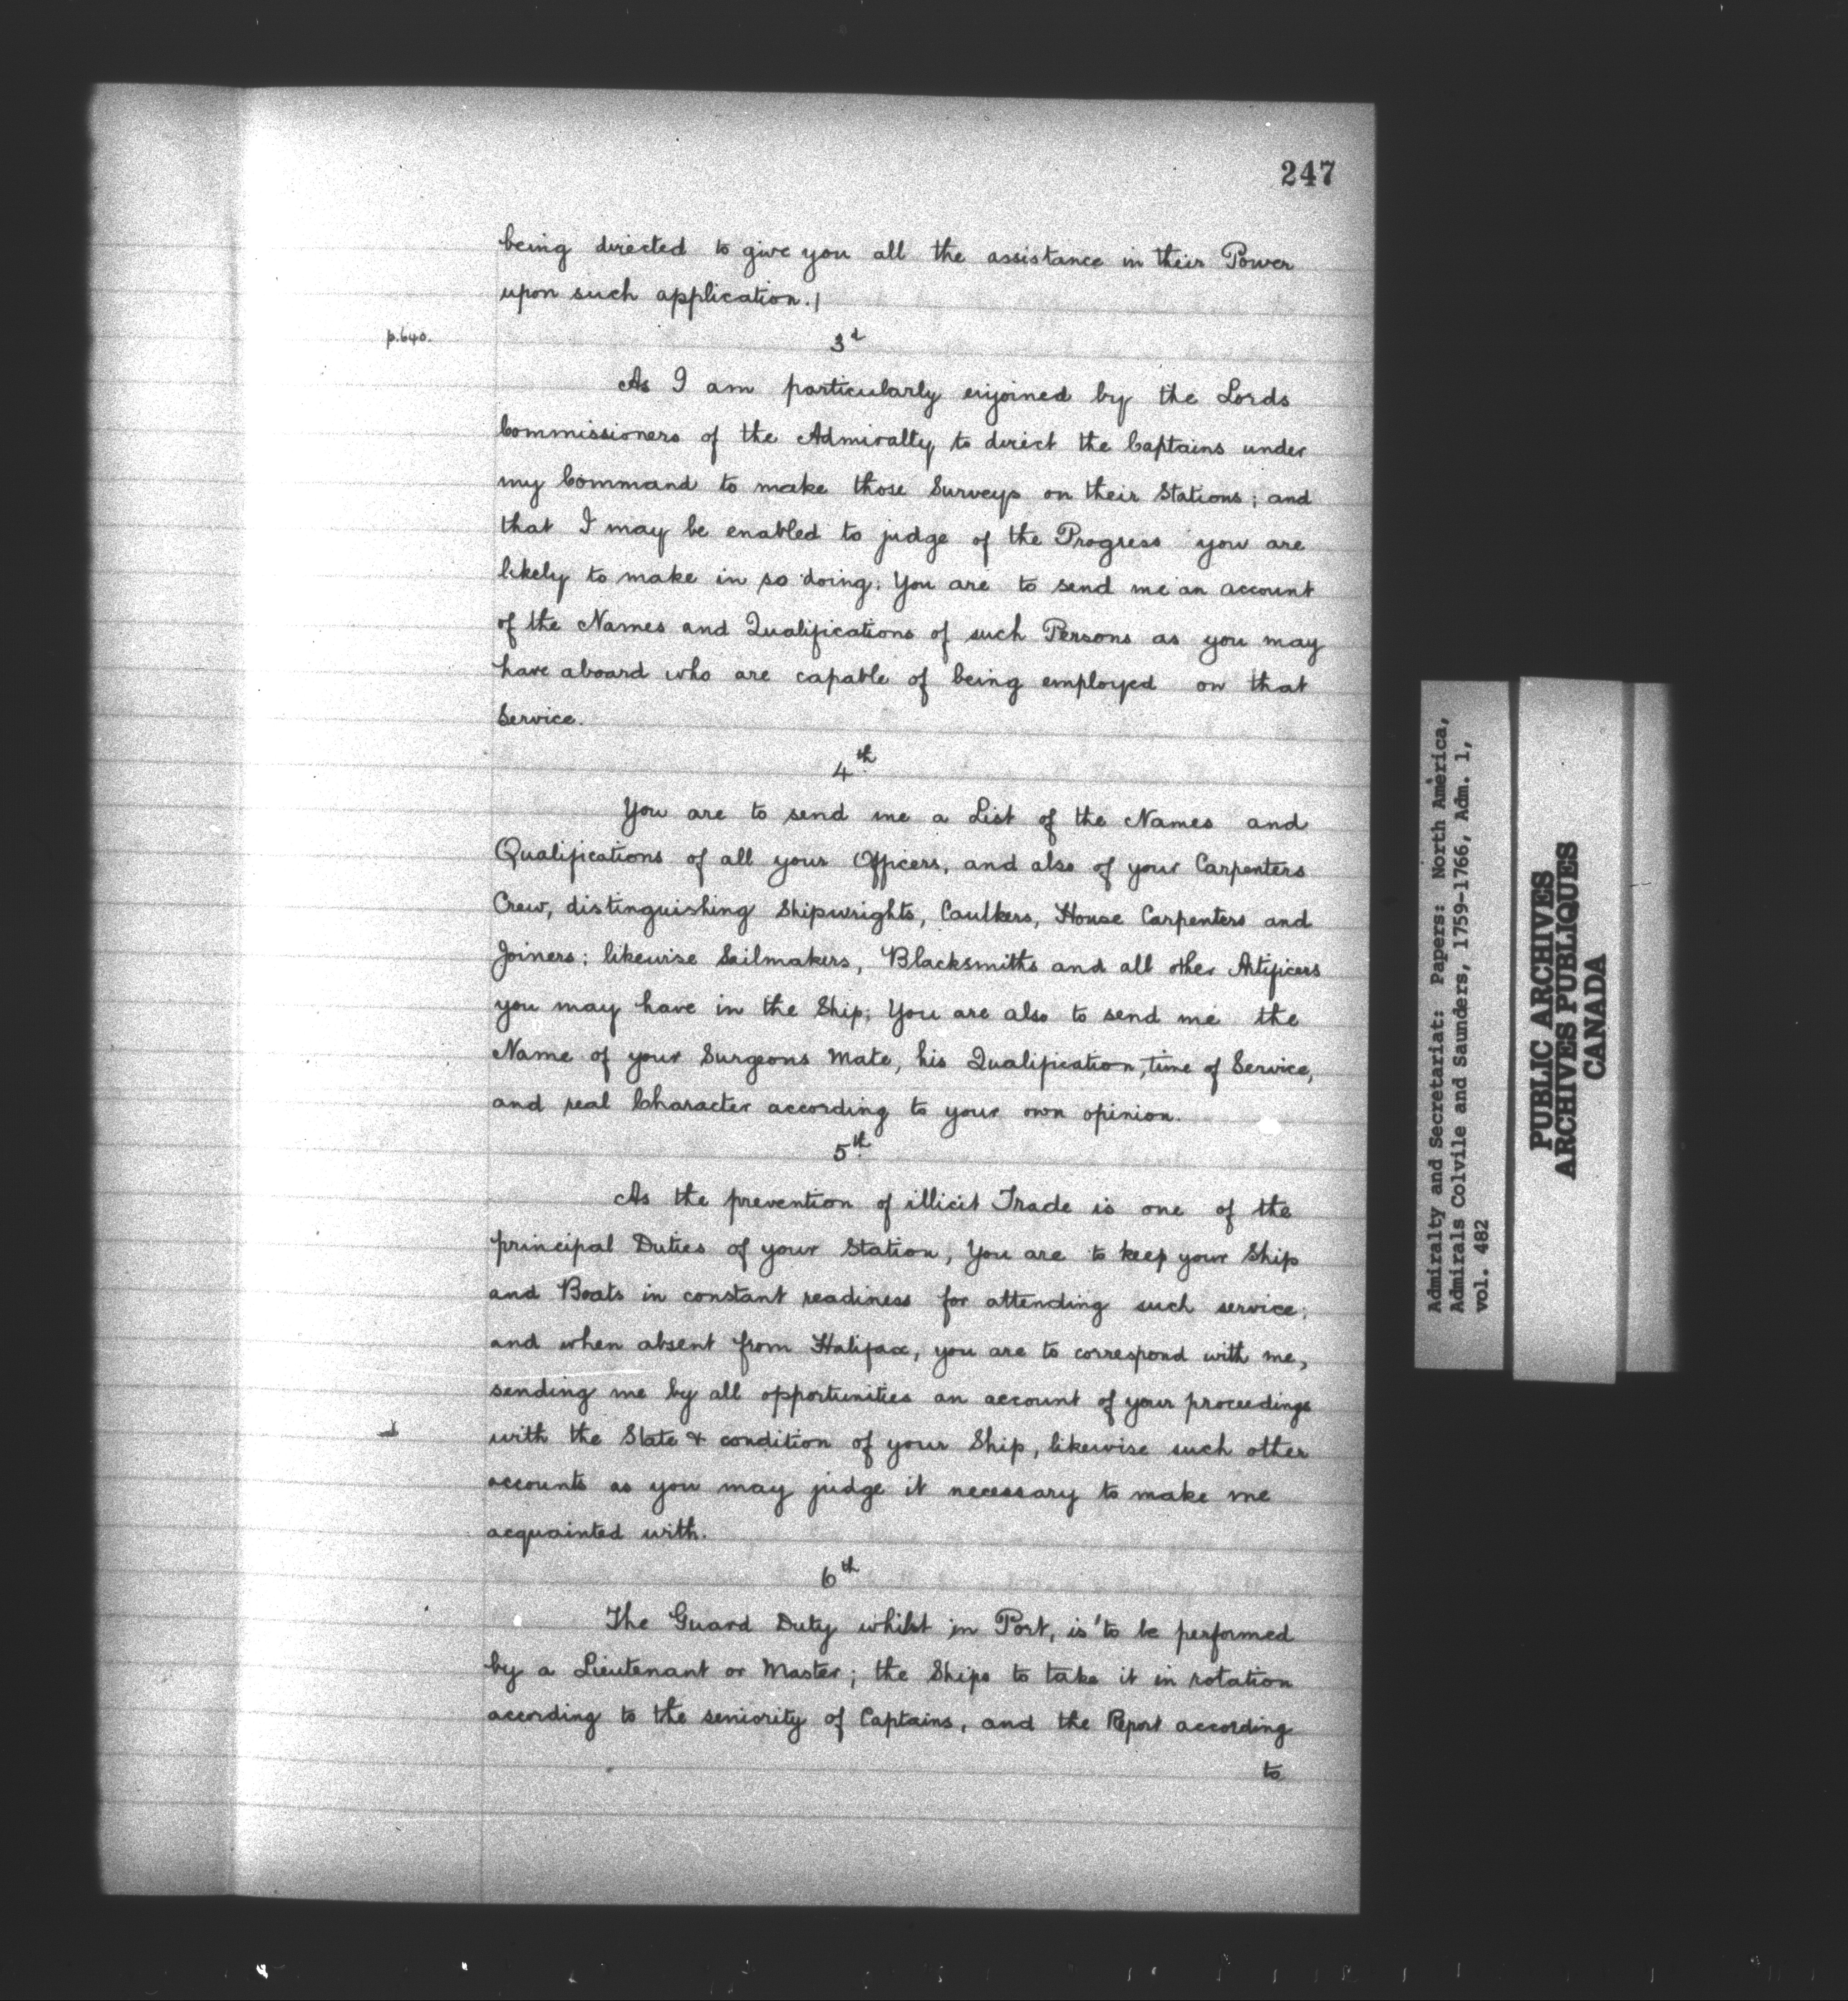 247
being directed to give you all the assistance in their Power
upon such application.)
p.640.
3d
As I am particularly enjoined by the Lords
Commissioners of the Admiralty to direct the Captains under
my Command to make those Surveys on their Stations; and
that I may be enabled to judge of the Progress you are
likely to make in so doing; You are to send me an account
of the Names and Qualifications of such Persons as you may
have aboard who are capable of being employed on that
Service.
4th
You are to send me a List of the Names and
Qualifications of all your Officers, and also of your Carpenters
Crew, distinguishing Shipwrights, Caulkers, House Carpenters and
Joiners; likewise Sailmakers, Blacksmiths and all other Artificers
you may have in the Ship; You are also to send me the
Name of your Surgeons Mate, his Qualification, time of Service,
and real Character according to your own opinion.
5th
As the prevention of illicit Trade is one of the
principal Duties of your Station, You are to keep your Ship
and Boats in constant readiness for attending such service;
and when absent from Halifax, you are to correspond with me,
sending me by all opportunities an account of your proceedings
with the State & condition of your Ship, likewise such other
accounts as you may judge it necessary to make me
acquainted with.
6th
The Guard Duty whilst in Port, is to be performed
by a Lieutenant or Master; the Ships to take it in rotation
according to the seniority of Captains, and the Report according
to
Admiralty and Secretariat: Papers: North America,
Admirals Colvile and Saunders, 1759-1766, Adm. 1,
vol. 482
PUBLIC ARCHIVES
ARCHIVES PUBLIQUES
CANADA